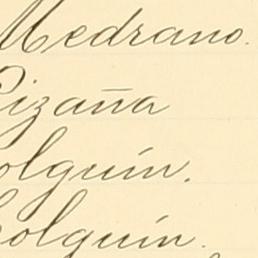 Medrano.
Pizaña
olguín.
olguín.